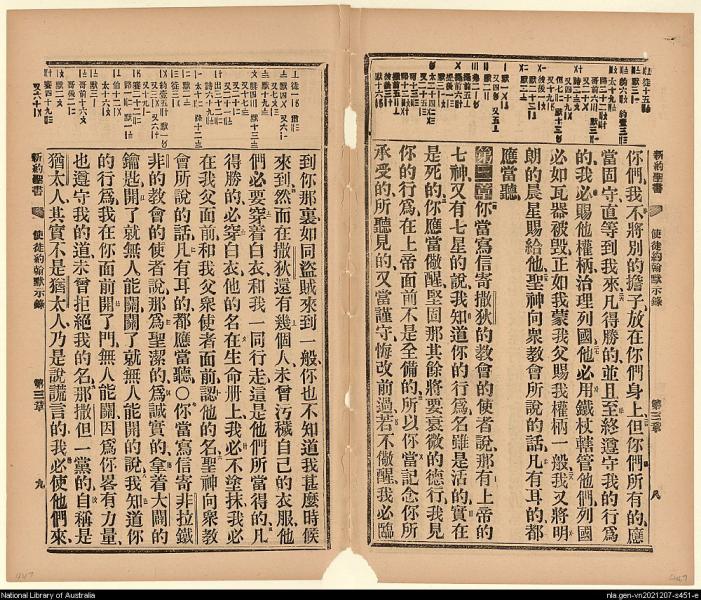 新約聖書 使徒約翰默示錄 第三章 八
你們我不將別的擔子放在你們身上但你們所有的應
當固守直等到我來凡得勝的並且至終遵守我的行爲
的我必賜他權柄治理列國他必用鐵杖轄管他們列國
必如瓦器被毀正如我蒙我父賜我權柄一般我又將明
朗的晨星賜給他聖神向衆教會所說的話凡有耳的都
應當聽
第三章 你當寫信寄撒狄的教會的使者說那有上帝的
七神又有七星的說我知道你的行爲名雖是活的實在
是死的你應當儆醒堅固那其餘將要衰微的德行我見
你的行爲在上帝面前不是全備的所以你當記念你所
承受的所聽見的又當謹守悔改前過若不儆醒我必臨
到你那裏如同盜賊來到一般你也不知道我甚麼時候
來到然而在撒狄還有幾個人未曾污穢自己的衣服他
們必要穿着白衣和我一同行走這是他們所當得的凡
得勝的必穿白衣他的名在生命册上我必不塗抹我必
在我父面前和我父衆使者面前認他的名聖神向衆教
會所說的話凡有耳的都應當聽〇你當寫信寄非拉鐵
非的教會的使者說那爲聖潔的爲誠實的拿着大闢的
鑰匙開了就無人能關關了就無人能開的說我知道你
的行爲我在你面前開了門無人能關因爲你畧有力量
也遵守我的道未曾拒絕我的名那撒但一黨的自稱是
猶太人其實不是猶太人乃是說謊言的我必使他們來
新約聖書 使徒約翰默示錄 第三章 九
947
947
National Library of Australia
nla.gen-vn2021207-s451-e